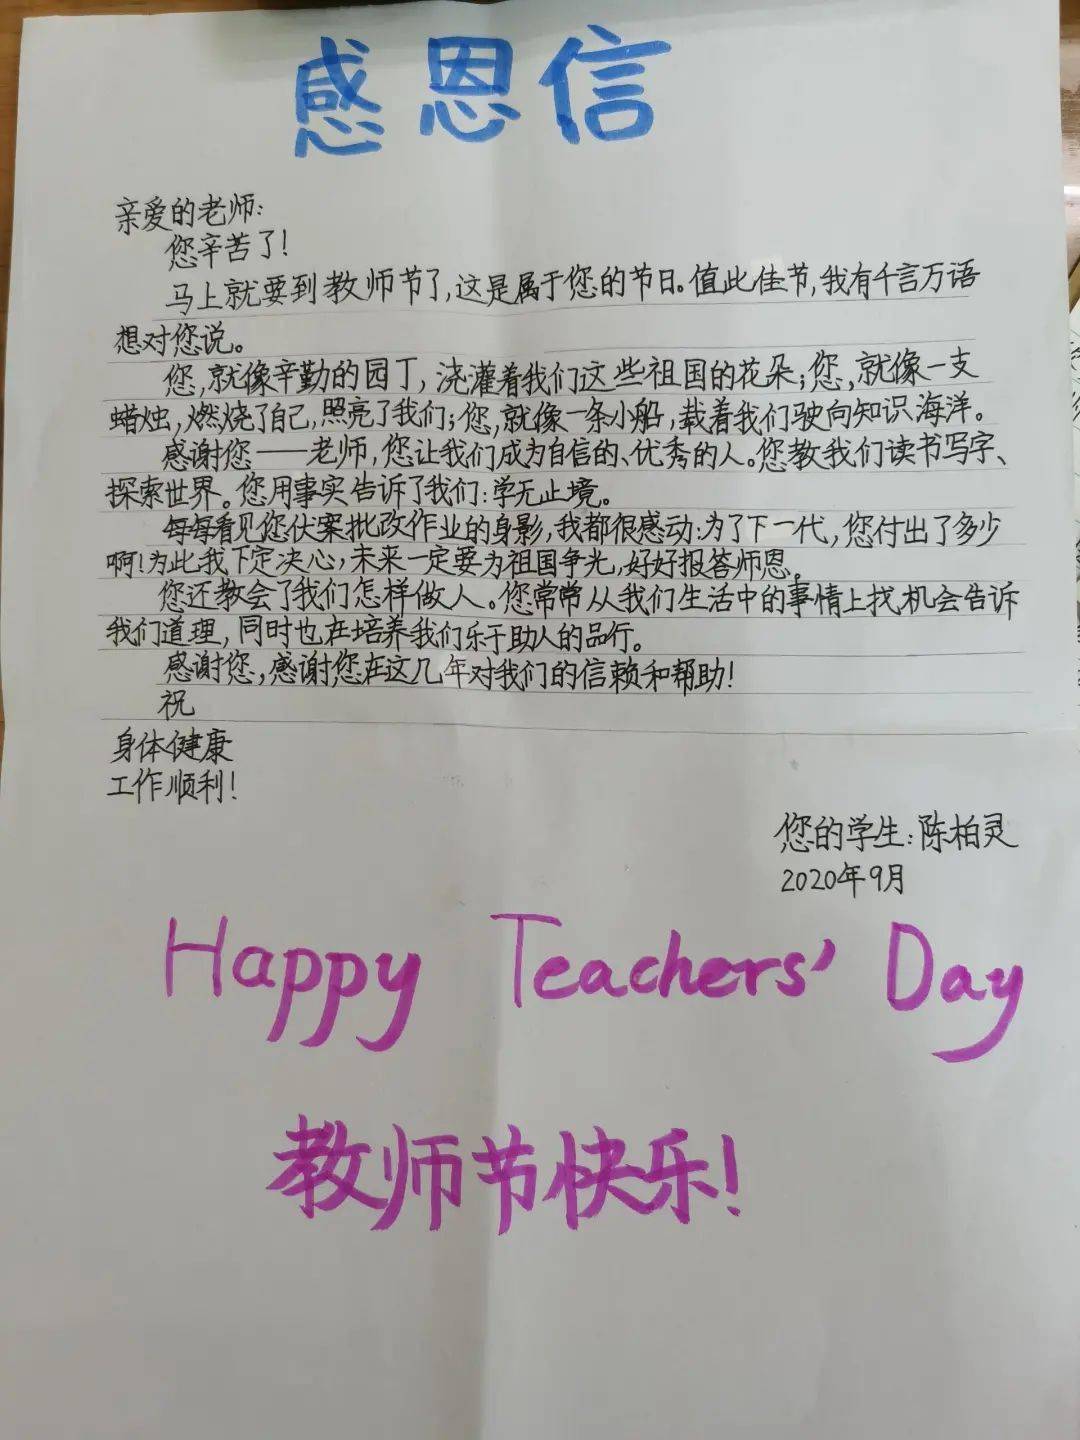 感恩信
亲爱的老师:
您辛苦了!
马上就要到教师节了,这是属于您的节日。值此佳节,我有千言万语
想对您说。
您,就像辛勤的园丁,浇灌着我们这些祖国的花朵;您,就像一支
蜡烛,燃烧了自己,照亮了我们;您,就像一条小船,载着我们驶向知识海洋。
感谢您——老师,您让我们成为自信的、优秀的人。您教我们读书写字、
探索世界。您用事实告诉了我们:学无止境。
每每看见您伏案批改作业的身影,我都很感动:为了下一代,您付出了多少
啊!为此我下定决心,未来一定要为祖国争光,好好报答师恩。
您还教会了我们怎样做人。您常常从我们生活中的事情上找机会告诉
我们道理,同时也在培养我们乐于助人的品行。
感谢您,感谢您在这几年对我们的信赖和帮助!
祝
身体健康
工作顺利!
您的学生:陈柏灵
2020年9月
Happy Teachers' Day
教师节快乐!